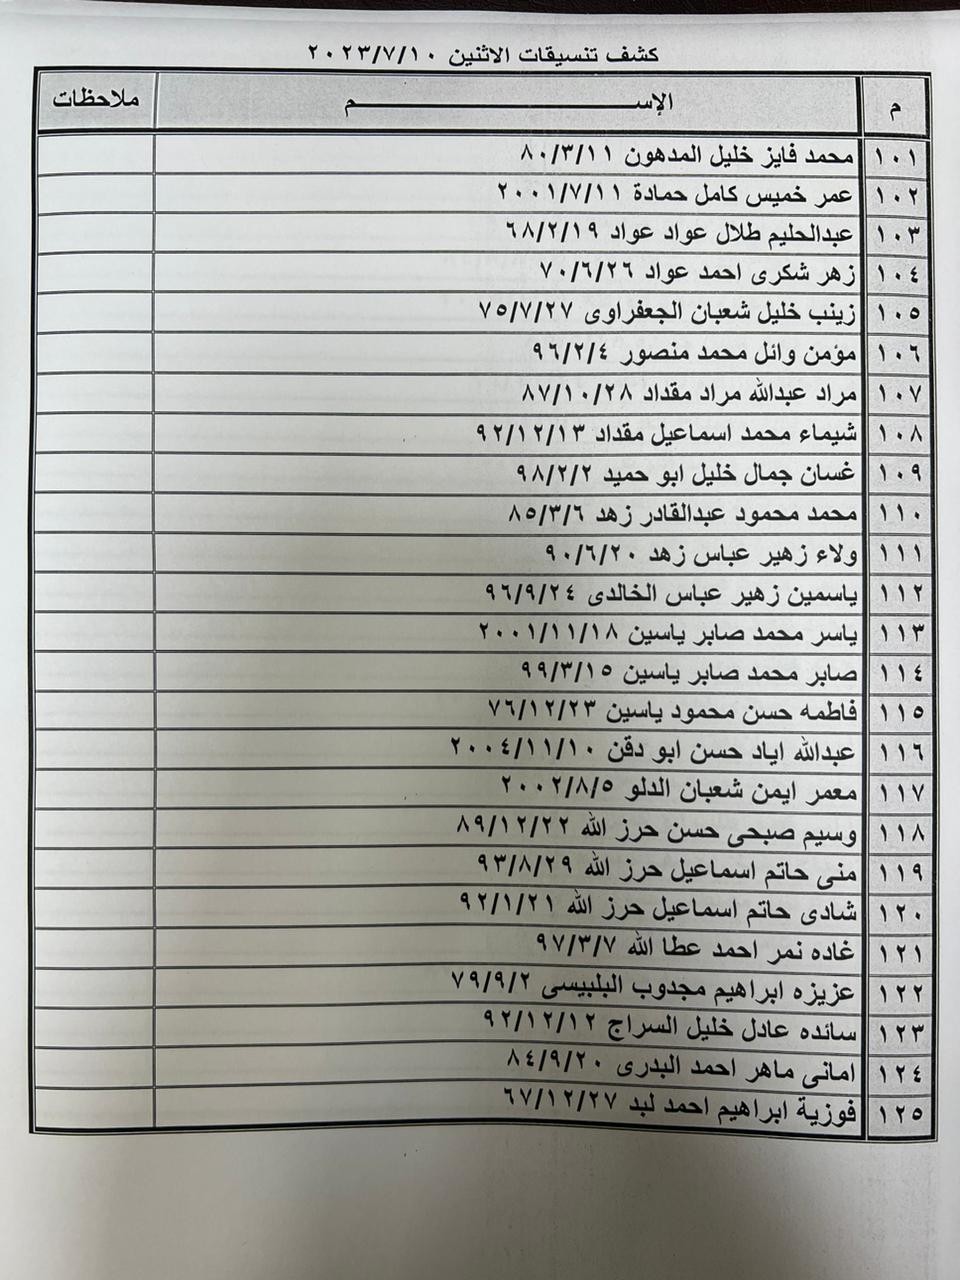 كشف تنسيقات الاثنين ٢٠٢٣/٧/١٠
م الإســـــم ملاحظات
١٠١ محمد فايز خليل المدهون ٨٠/٣/١١
١٠٢ عمر خميس كامل حمادة ٢٠٠١/٧/١١
١٠٣ عبدالحليم طلال عواد عواد ٦٨/٢/١٩
١٠٤ زهر شكرى احمد عواد ٧٠/٦/٢٦
١٠٥ زينب خليل شعبان الجعفراوى ٧٥/٧/٢٧
١٠٦ مؤمن وائل محمد منصور ٩٦/٢/٤
١٠٧ مراد عبدالله مراد مقداد ٨٧/١٠/٢٨
١٠٨ شيماء محمد اسماعيل مقداد ٩٢/١٢/١٣
١٠٩ غسان جمال خليل ابو حميد ٩٨/٢/٢
١١٠ محمد محمود عبدالقادر زهد ٨٥/٣/٦
١١١ ولاء زهير عباس زهد ٩٠/٦/٢٠
١١٢ ياسمين زهير عباس الخالدى ٩٦/٩/٢٤
١١٣ ياسر محمد صابر ياسين ٢٠٠١/١١/١٨
١١٤ صابر محمد صابر ياسين ٩٩/٣/١٥
١١٥ فاطمه حسن محمود ياسين ٧٦/١٢/٢٣
١١٦ عبدالله اياد حسن ابو دقن ٢٠٠٤/١١/١٠
١١٧ معمر ايمن شعبان الدلو ٢٠٠٢/٨/٥
١١٨ وسيم صبحى حسن حرز الله ٨٩/١٢/٢٢
١١٩ منى حاتم اسماعيل حرز الله ٩٣/٨/٢٩
١٢٠ شادى حاتم اسماعيل حرز الله ٩٢/١/٢١
١٢١ غاده نمر احمد عطا الله ٩٧/٣/٧
١٢٢ عزيزه ابراهيم مجدوب البلبيسى ٧٩/٩/٢
١٢٣ سائده عادل خليل السراج ٩٢/١٢/١٢
١٢٤ امانى ماهر احمد البدرى ٨٤/٩/٢٠
١٢٥ فوزية ابراهيم احمد لبد ٦٧/١٢/٢٧